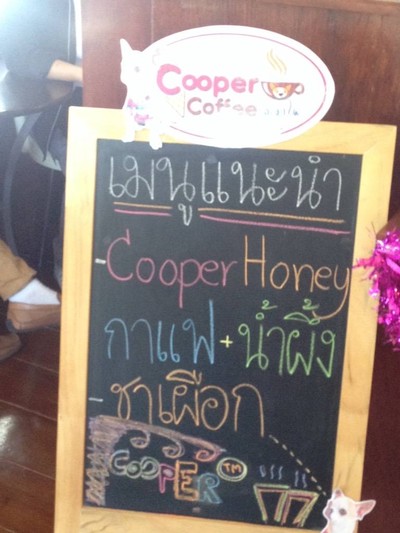 Cooper
Coffee
เมนูแนะนำ
- Cooper Honey
กาแฟ + น้ำผึ้ง
- ชาเผือก
COOPER TM